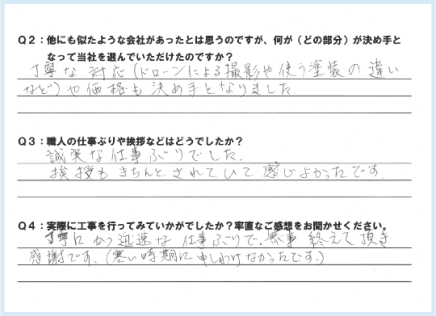 Q2:他にも似たような会社があったとは思うのですが、何が(どの部分)が決め手と
なって当社を選んでいただけたのですか?
丁寧な対応(ドローンによる撮影や使う塗装の違い
など)や価格も決め手となりました。
Q3:職人の仕事ぶりや挨拶などはどうでしたか?
誠実な仕事ぶりでした。
挨拶もきちんとされていて感じよかったです。
Q4:実際に工事を行ってみていかがでしたか?率直なご感想をお聞かせください。
丁寧にかつ迅速な仕事ぶりで、無事終えて頂き
感謝です。(寒い時期に申しわけなかったです。)